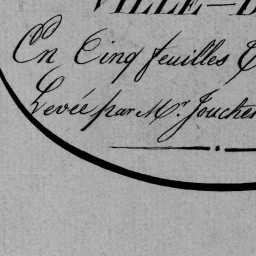 VILLE–D
En Cinq feuilles
Levée par Mr. Jouchen